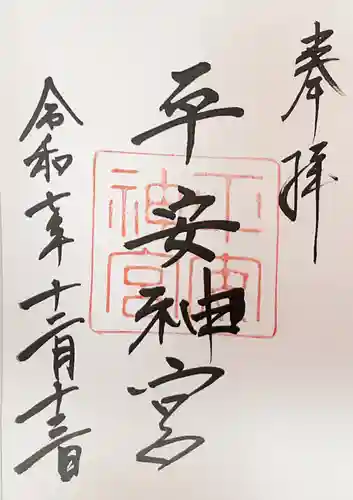 奉拝
平安神宮
令和七年十二月十三日
平安
神宮